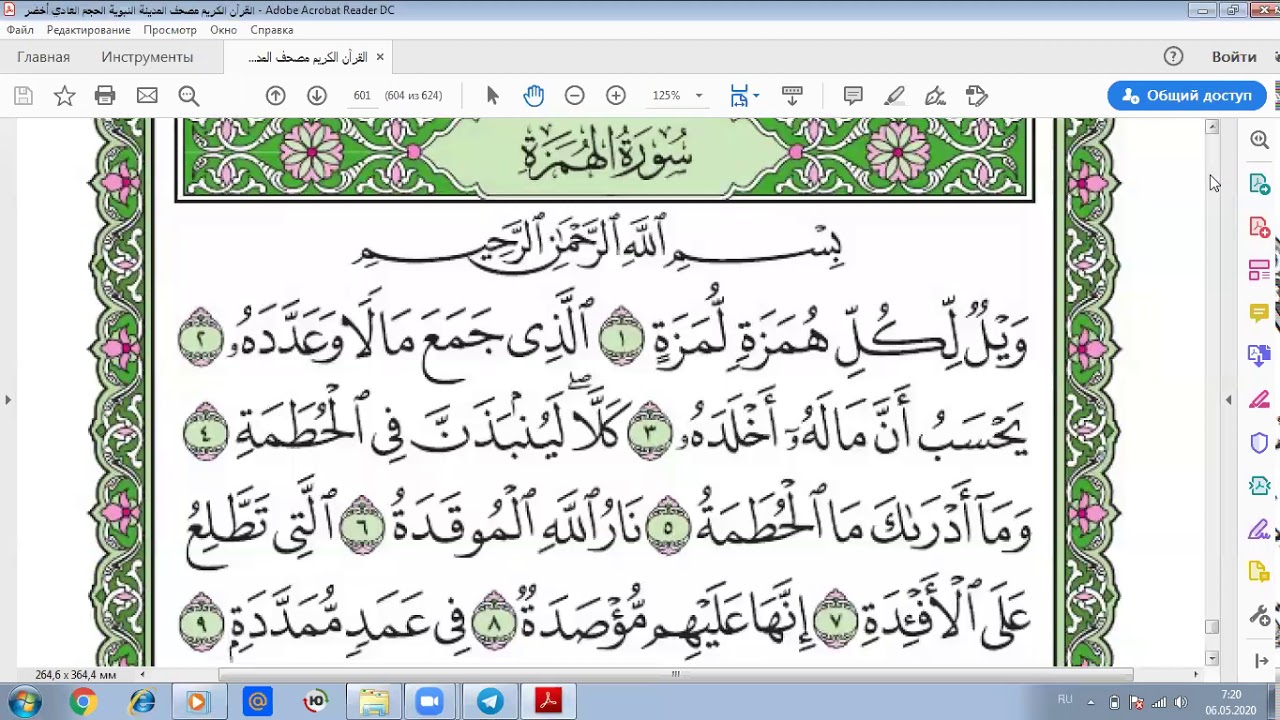 القرآن الكريم مصحف المدينة النبوية الحجم العادي أخضر - Adobe Acrobat Reader DC
Файл Редактирование Просмотр Окно Справка
Главная Инструменты القرآن الكريم مصحف المد... × Войти
601 (604 из 624) 125% Общий доступ
سُورَةُ الهُمَزَةِ
بِسْمِ ٱللَّهِ ٱلرَّحْمَٰنِ ٱلرَّحِيمِ
وَيْلٌ لِّكُلِّ هُمَزَةٍ لُّمَزَةٍ ١ ٱلَّذِى جَمَعَ مَالًا وَعَدَّدَهُۥ ٢
يَحْسَبُ أَنَّ مَالَهُۥٓ أَخْلَدَهُۥ ٣ كَلَّاۖ لَيُنۢبَذَنَّ فِى ٱلْحُطَمَةِ ٤
وَمَآ أَدْرَىٰكَ مَا ٱلْحُطَمَةُ ٥ نَارُ ٱللَّهِ ٱلْمُوقَدَةُ ٦ ٱلَّتِى تَطَّلِعُ
عَلَى ٱلْأَفْـِٔدَةِ ٧ إِنَّهَا عَلَيْهِم مُّؤْصَدَةٌ ٨ فِى عَمَدٍ مُّمَدَّدَةٍۭ ٩
264,6 x 364,4 мм
RU 7:20
06.05.2020